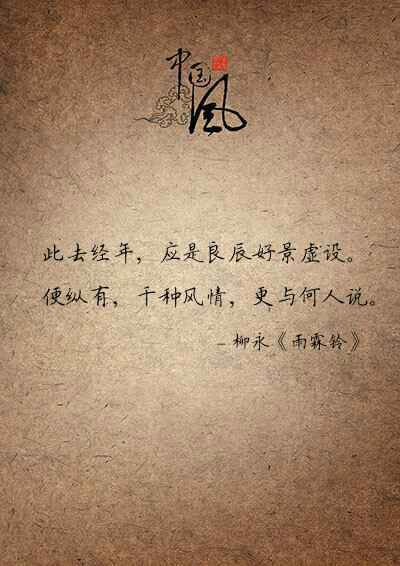 中国风
此去经年，应是良辰好景虚设。
便纵有，千种风情，更与何人说。
- 柳永《雨霖铃》